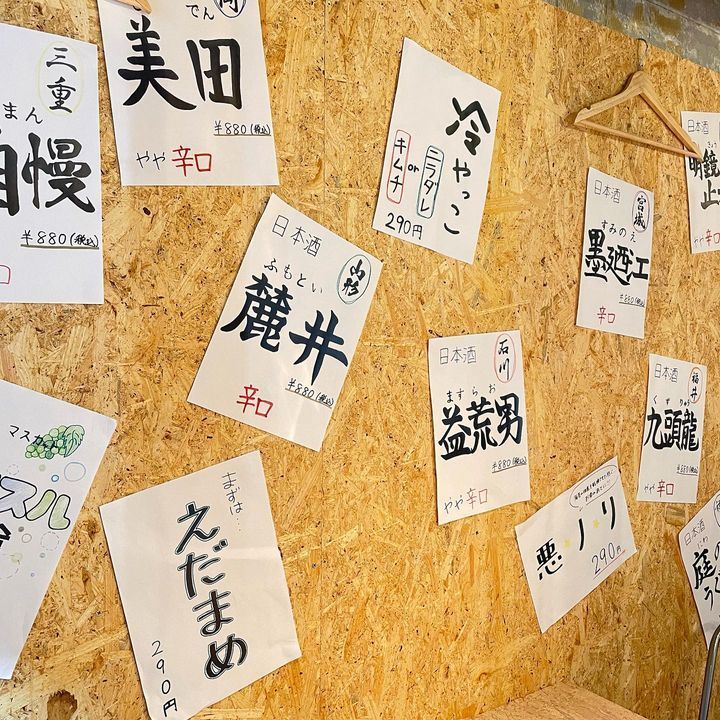 三重
まん
自慢
¥880(税込)
口
岡
でん
美田
¥880(税込)
やや辛口
冷やっこ
キムチ
or
ニラダレ
290円
日本酒
山形
ふもとい
麓井
¥880(税込)
辛口
日本酒
宮城
すみのえ
墨廼江
¥880(税込)
辛口
日本酒
明鏡
止
¥880
辛口
日本酒
石川
ますらお
益荒男
¥880(税込)
やや辛口
日本酒
福井
くずりゅう
九頭龍
¥880(税込)
やや辛口
マスカット
スル
まずは…
えだまめ
290円
悪ノリ
290円
日本酒
庭の
うぐ